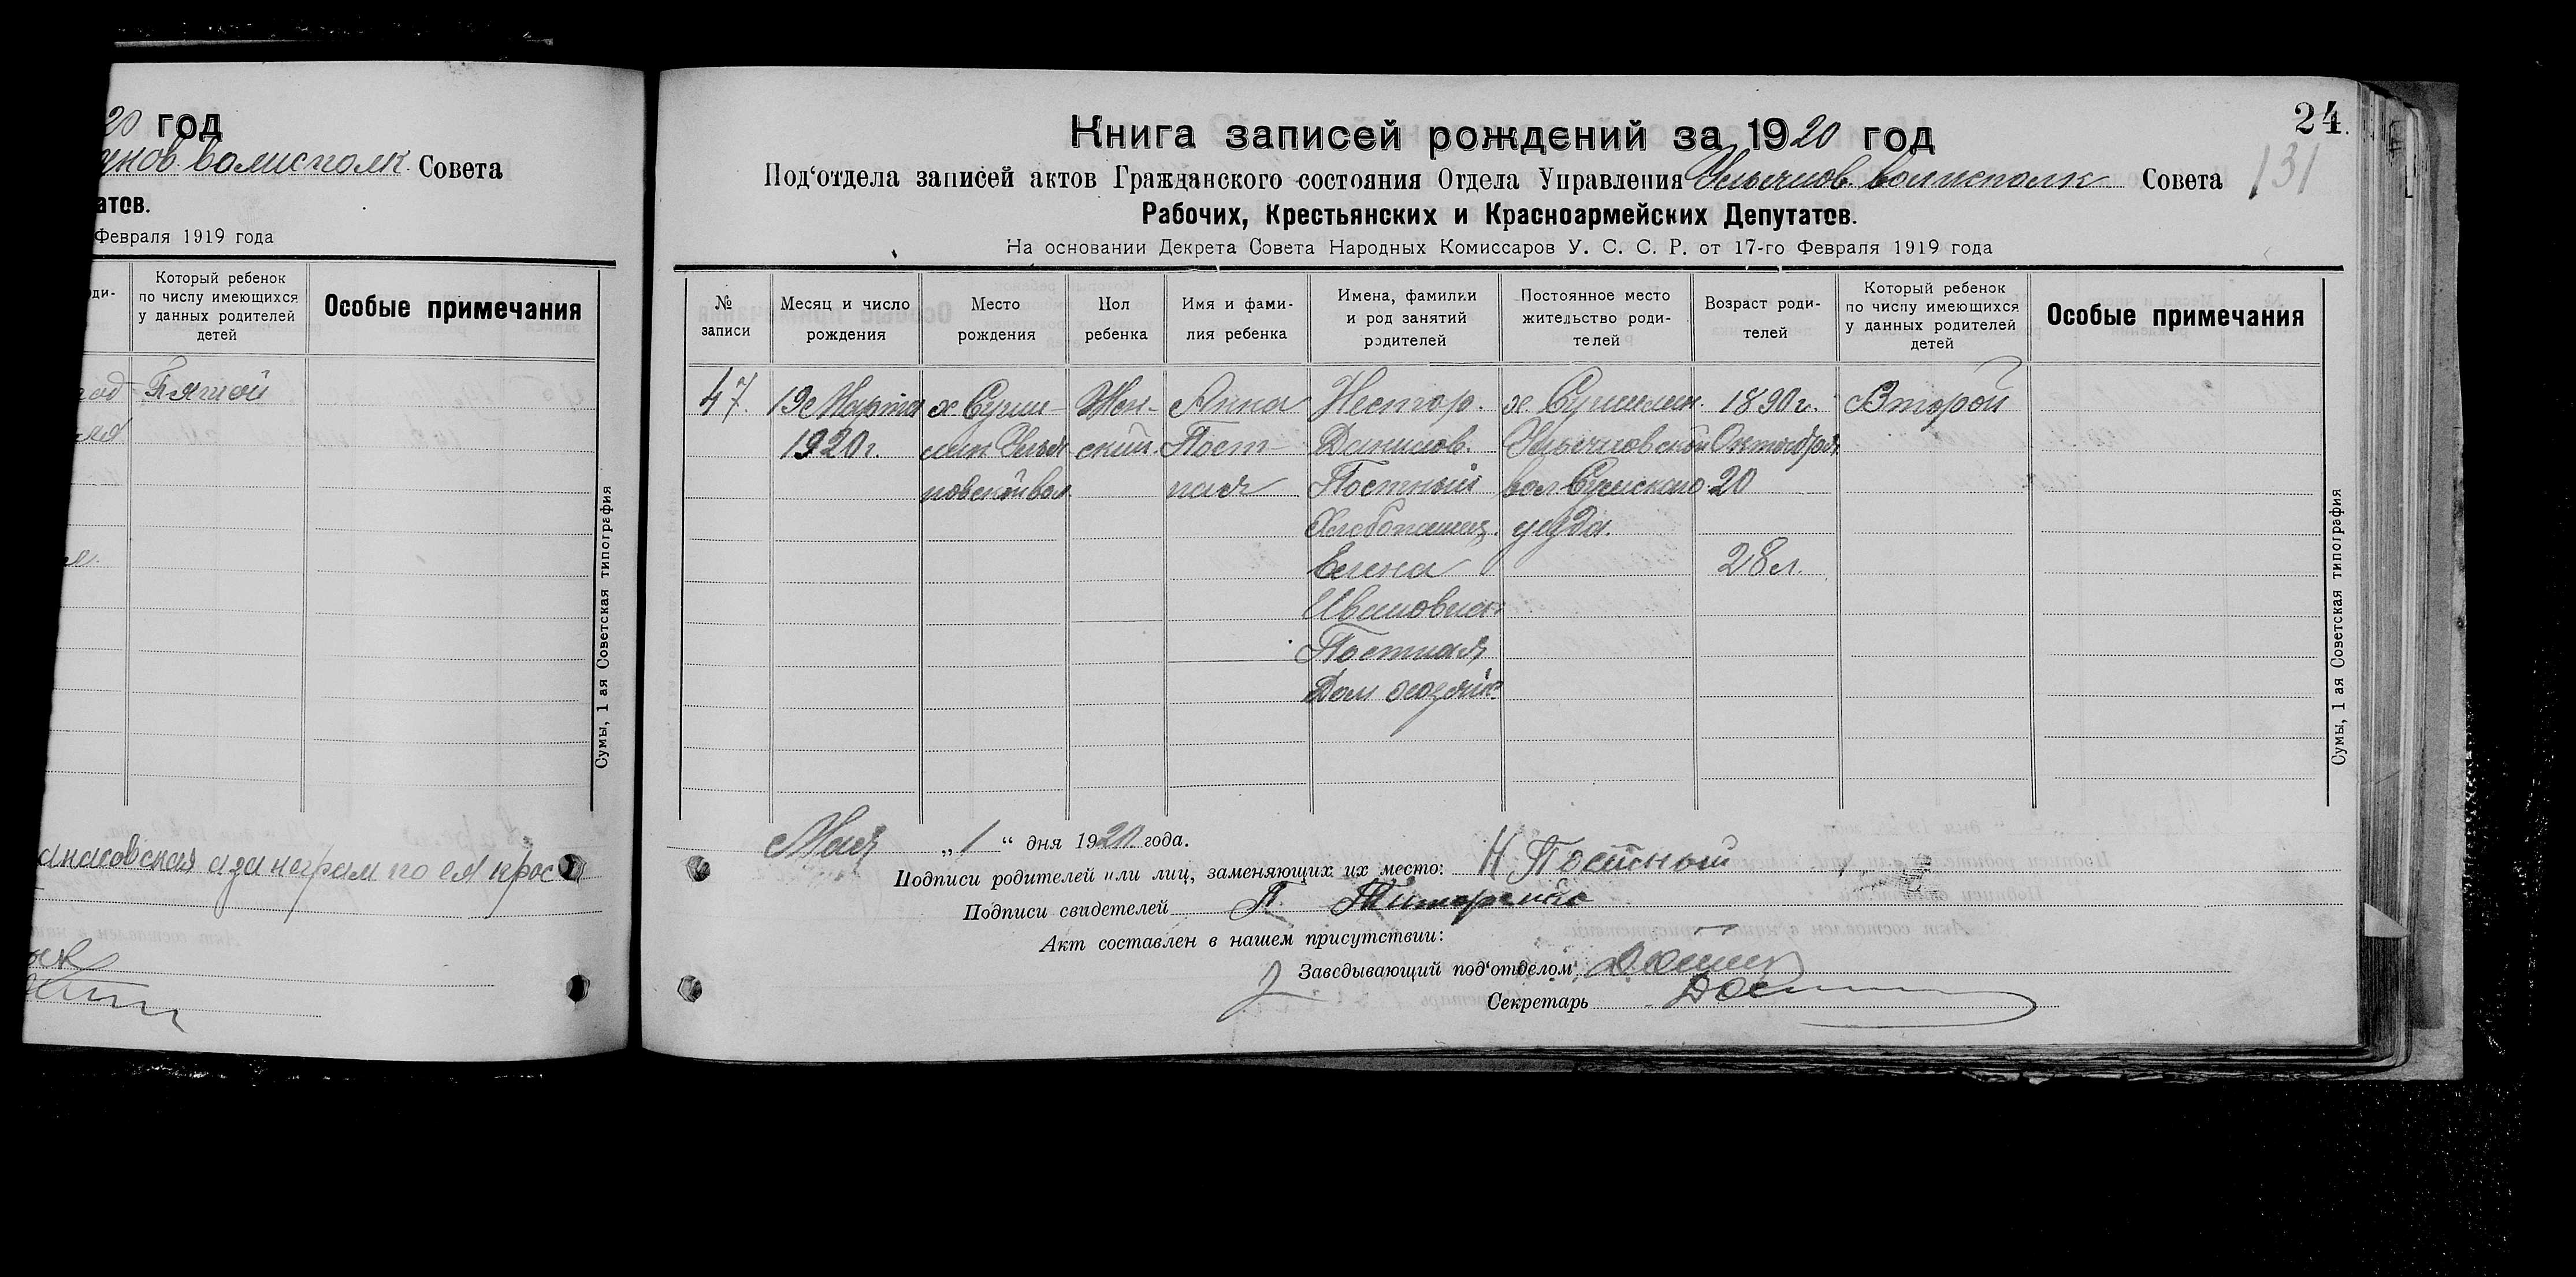 20 год
волисполк. Совета
атов.
Февраля 1919 года
Который ребенок
по числу имеющихся
у данных родителей
детей
Особые примечания
Пятой
Сумы, 1 ая Советская типография
24.
131
Книга записей рождений за 1920 год
Под‘отдела записей актов Гражданского состояния Отдела Управления волисполк Совета
Рабочих, Крестьянских и Красноармейских Депутатов.
На основании Декрета Совета Народных Комиссаров У. С. С. Р. от 17-го Февраля 1919 года
№
записи
Месяц и число
рождения
Место
рождения
Пол
ребенка
Имя и фами-
лия ребенка
Имена, фамилии
и род занятий
родителей
Постоянное место
жительство роди-
телей
Возраст роди-
телей
Который ребенок
по числу имеющихся
у данных родителей
детей
Особые примечания
47.
19 Марта
1920г.
Жен-
ский.
Анна
Пост-
ная
Нестор.
Данилов.
Постный
Хлебопашец.
Елена
Ивановна
Постная
Дом хозяйк.
вол Сумского
уезда.
1890г.
Октября
20
28л.
Второй
Сумы, 1 ая Советская типография
Мая „1“ дня 1920 года.
Подписи родителей или лиц, заменяющих их место: Н Постный
Подписи свидетелей П. Титаренко
Акт составлен в нашем присутствии:
Заведывающий под‘отделом
Секретарь